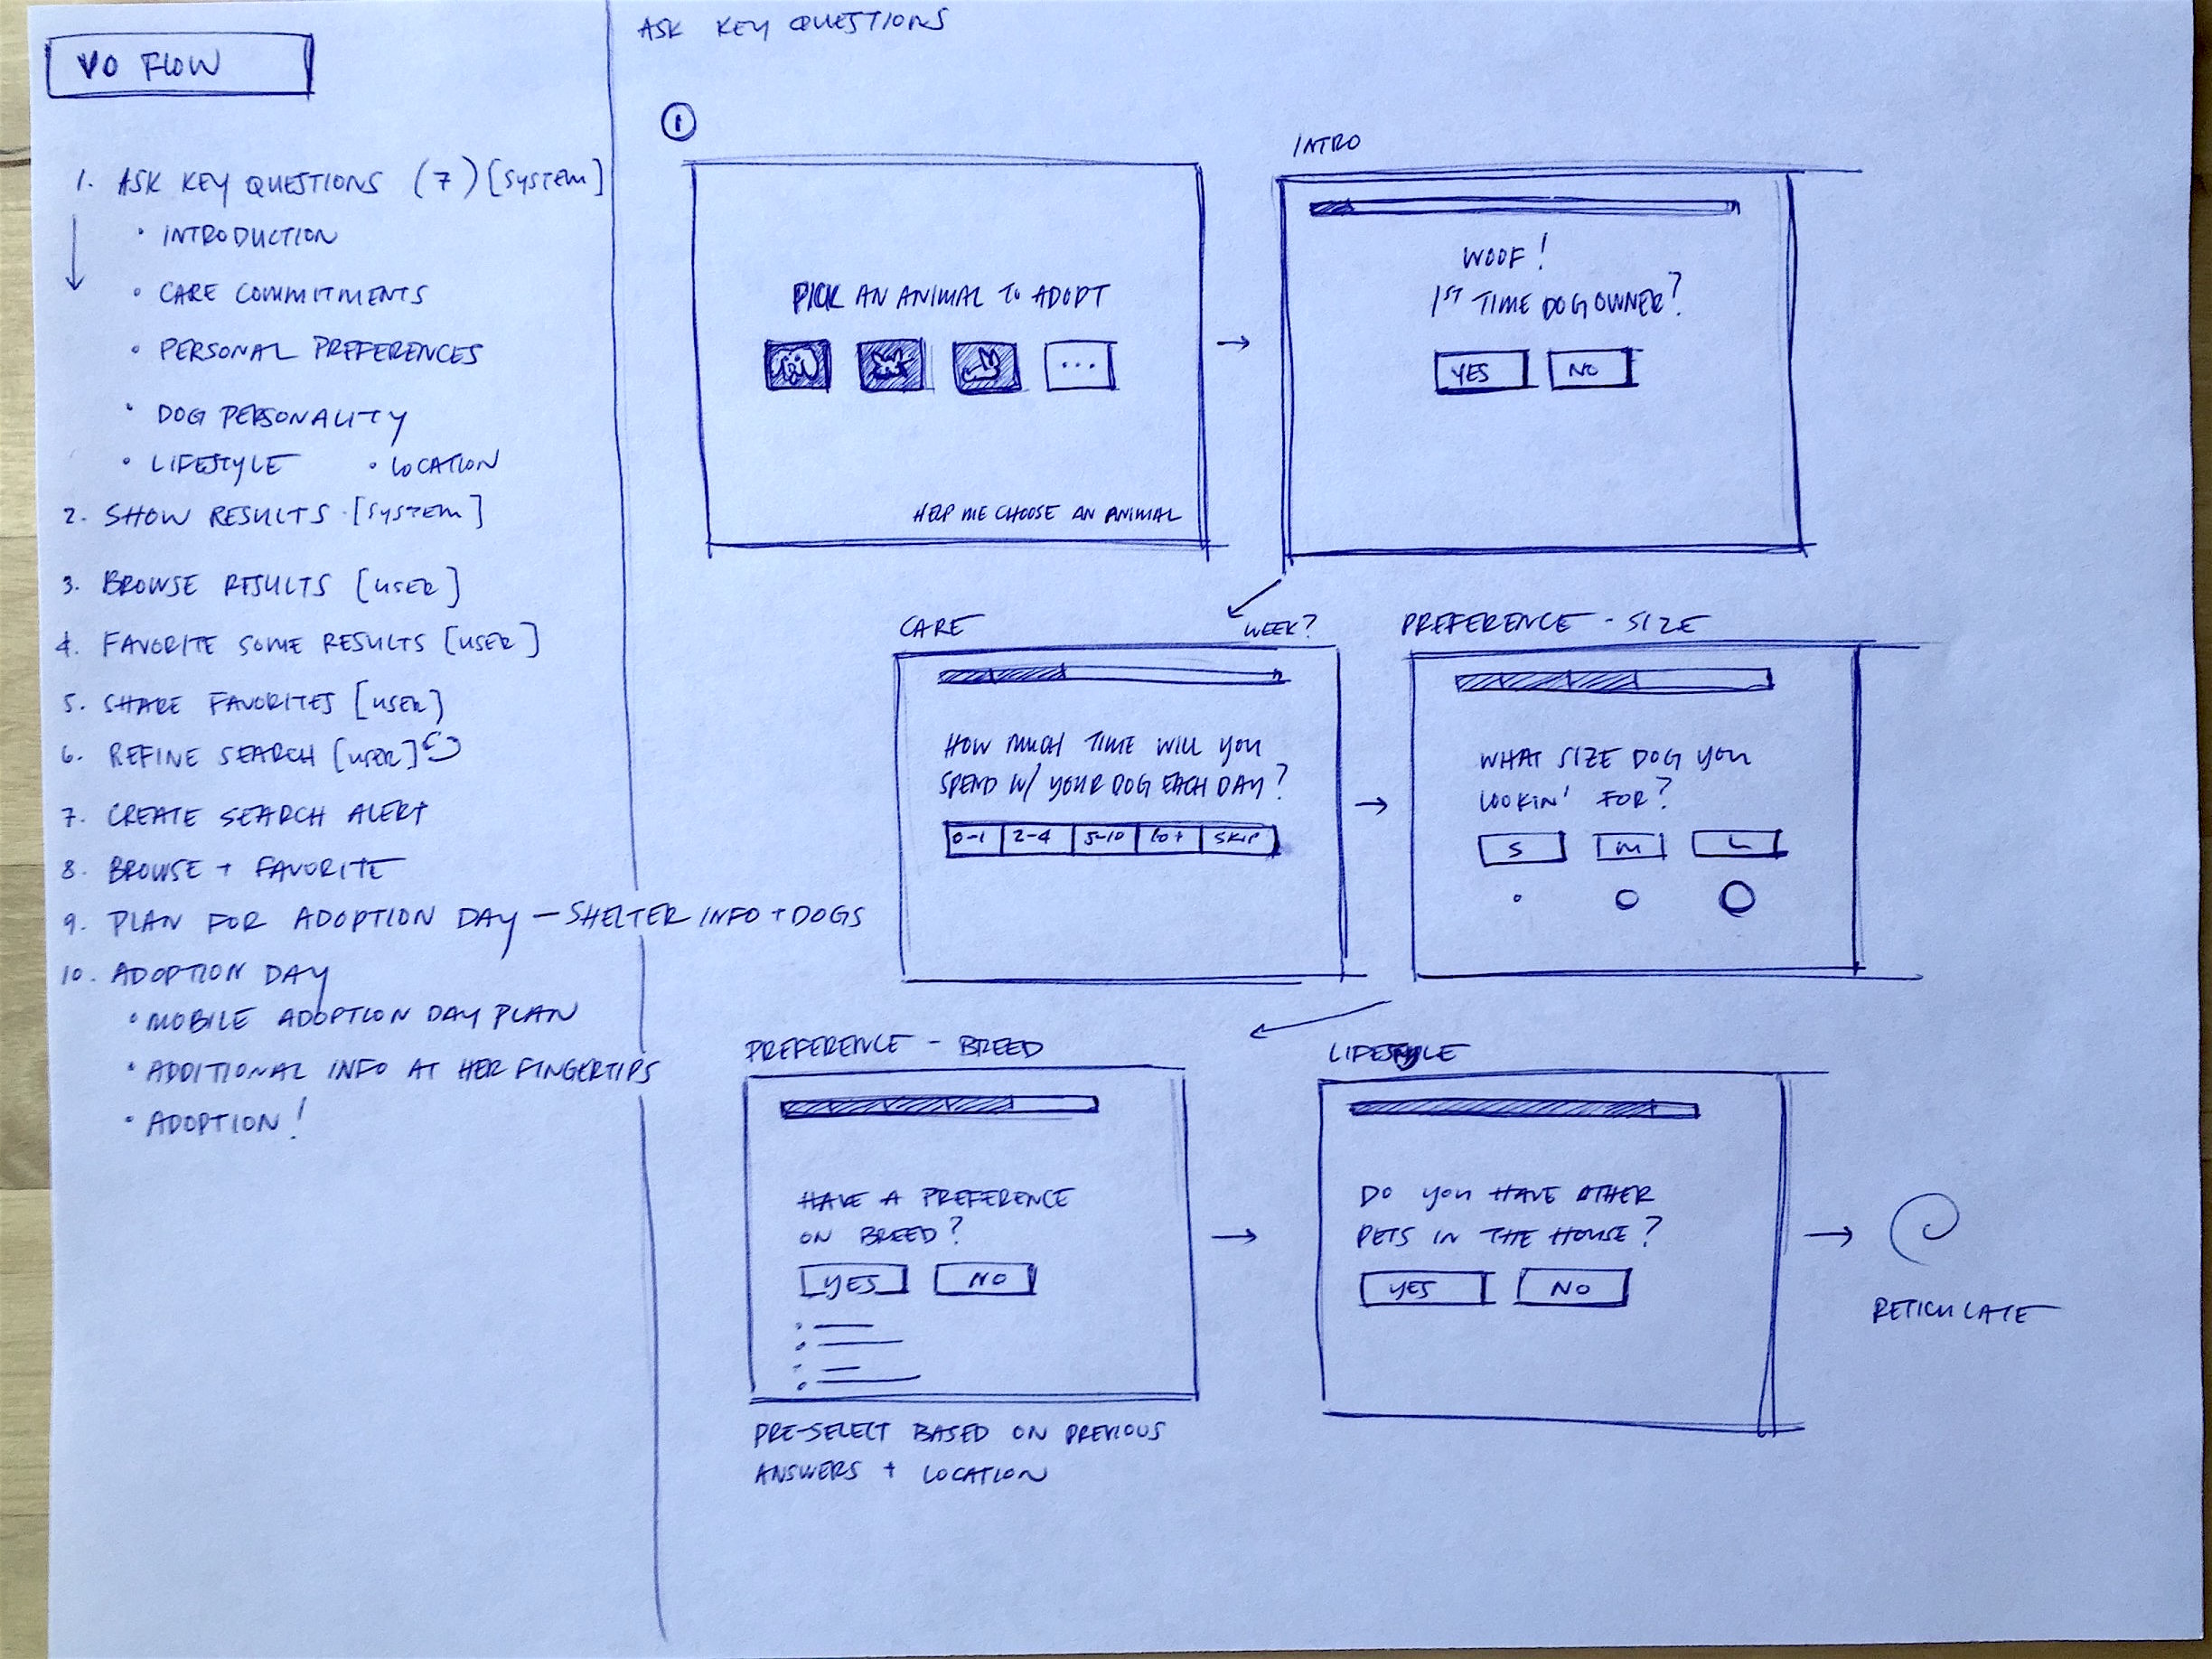 V0 FLOW
1. ASK KEY QUESTIONS (7) [SYSTEM]
• INTRODUCTION
• CARE COMMITMENTS
• PERSONAL PREFERENCES
• DOG PERSONALITY
• LIFESTYLE • LOCATION
2. SHOW RESULTS [SYSTEM]
3. BROWSE RESULTS [USER]
4. FAVORITE SOME RESULTS [USER]
5. SHARE FAVORITES [USER]
6. REFINE SEARCH [USER]
7. CREATE SEARCH ALERT
8. BROWSE + FAVORITE
9. PLAN FOR ADOPTION DAY — SHELTER INFO + DOGS
10. ADOPTION DAY
• MOBILE ADOPTION DAY PLAN
• ADDITIONAL INFO AT HER FINGERTIPS
• ADOPTION!
ASK KEY QUESTIONS
1
PICK AN ANIMAL TO ADOPT
...
HELP ME CHOOSE AN ANIMAL
INTRO
WOOF!
1ST TIME DOG OWNER?
YES NO
CARE
WEEK?
HOW MUCH TIME WILL YOU
SPEND W/ YOUR DOG EACH DAY?
0-1 2-4 5-10 10+ SKIP
PREFERENCE - SIZE
WHAT SIZE DOG YOU
LOOKIN' FOR?
S M L
PREFERENCE - BREED
HAVE A PREFERENCE
ON BREED?
YES NO
PRE-SELECT BASED ON PREVIOUS
ANSWERS + LOCATION
LIFESTYLE
DO YOU HAVE OTHER
PETS IN THE HOUSE?
YES NO
RETICULATE